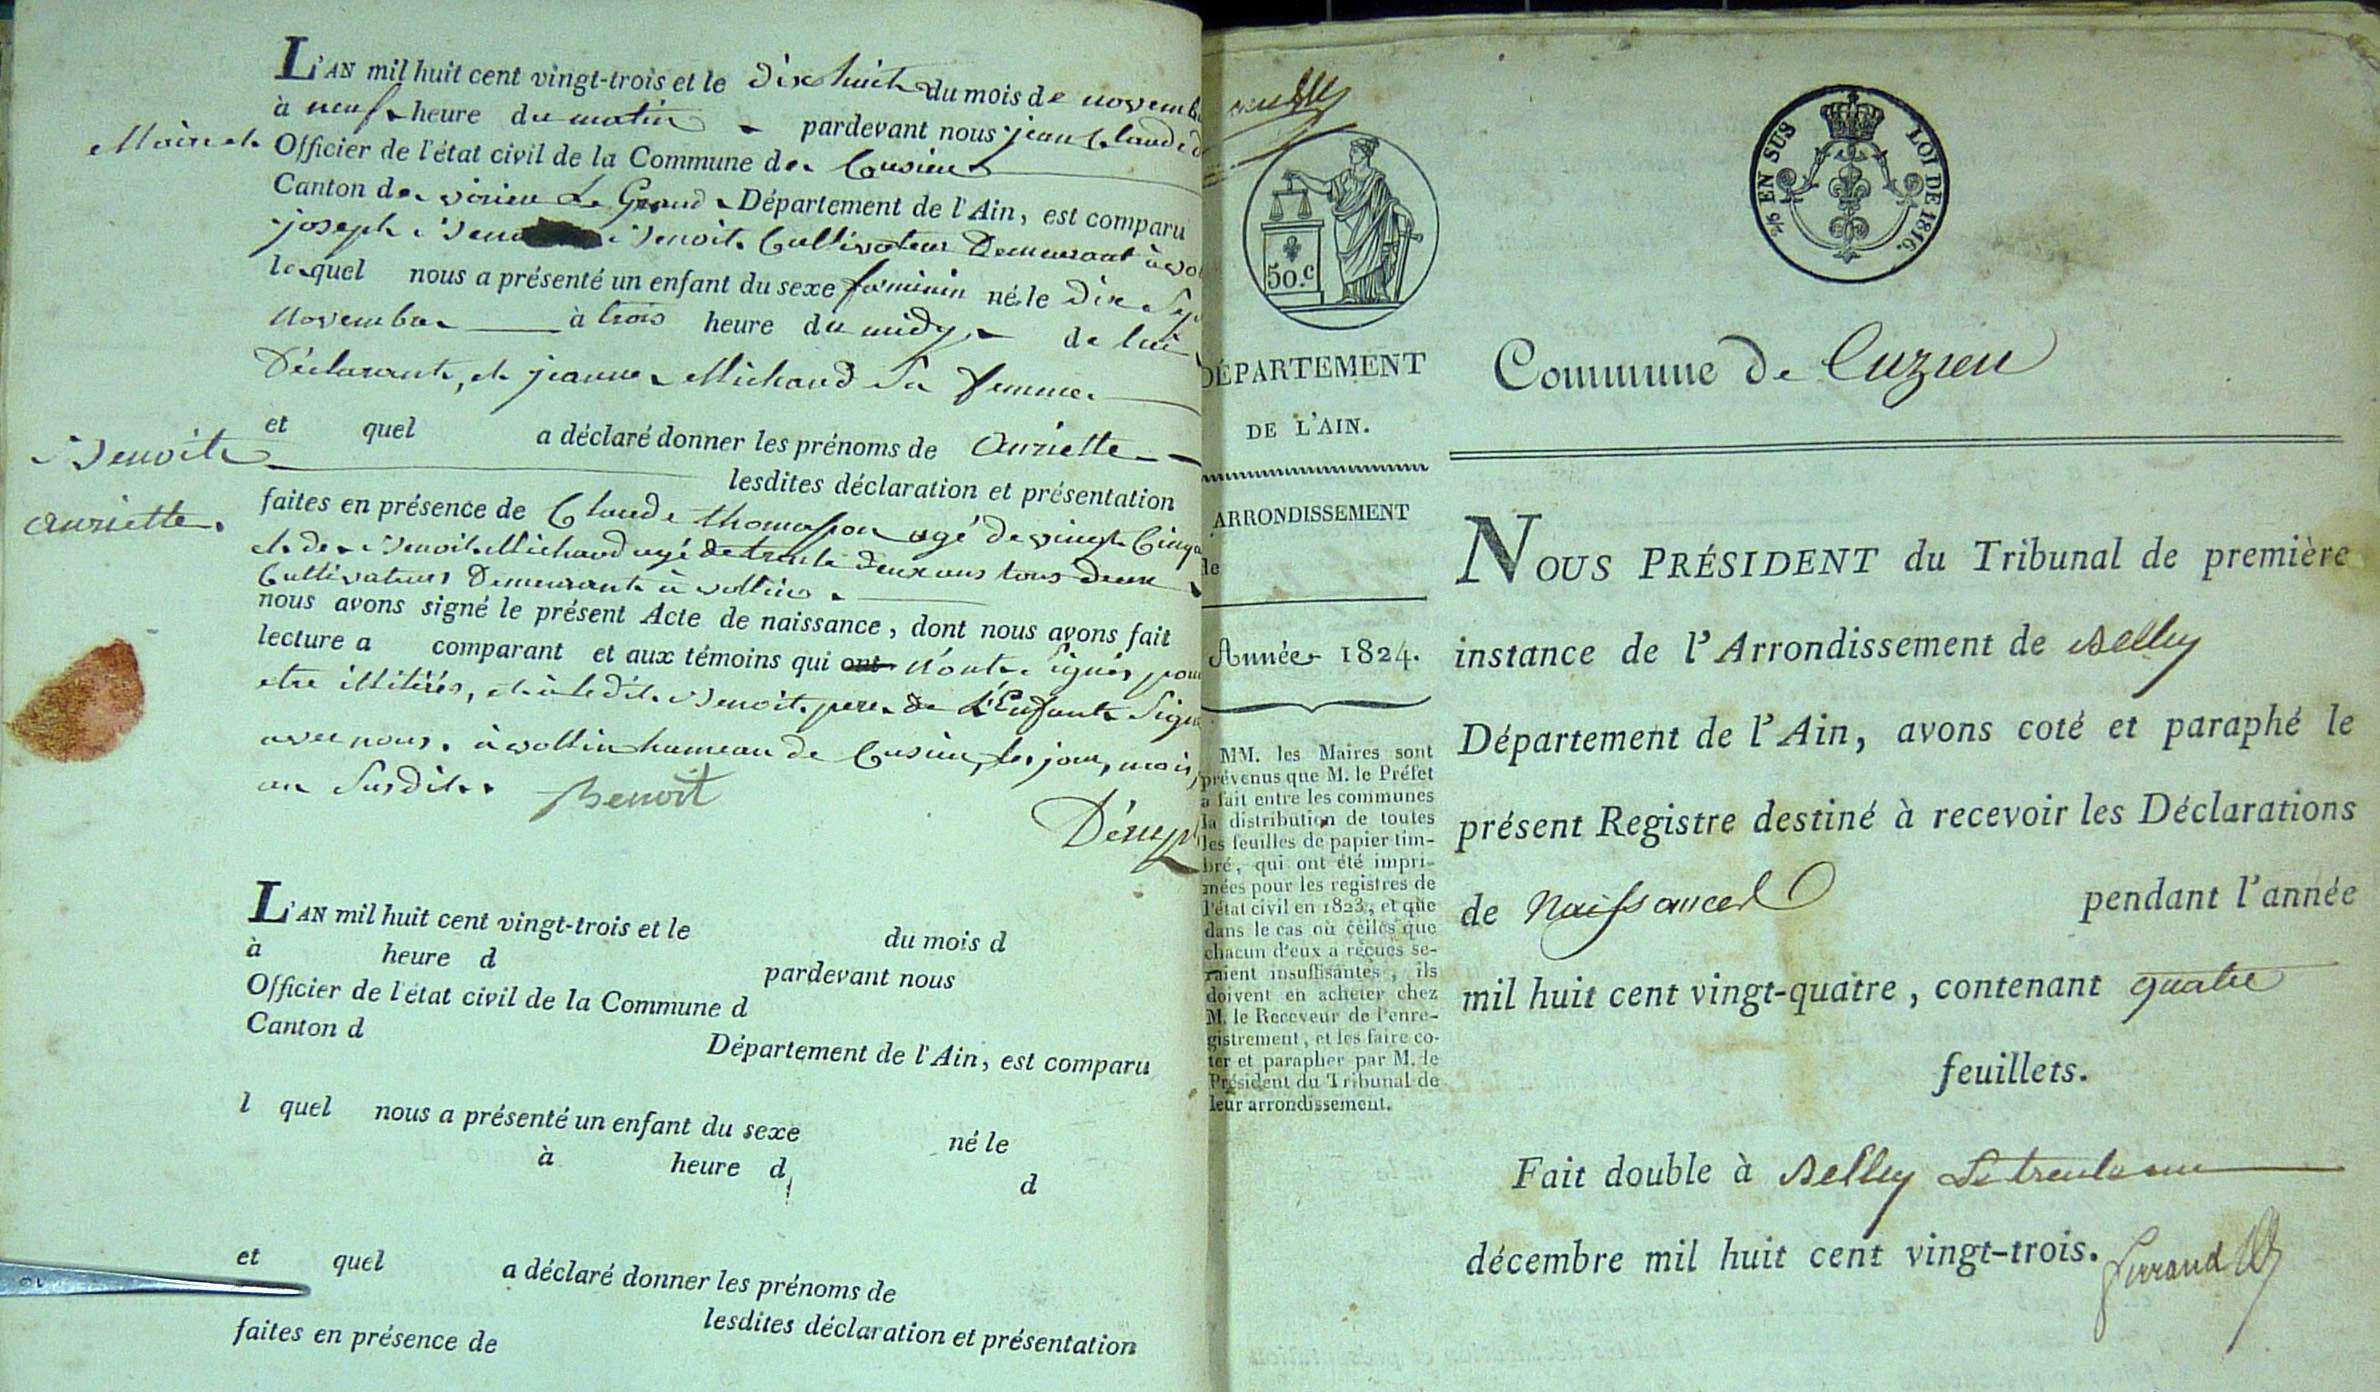 L'AN mil huit cent vingt-trois et le dix huit du mois de novemb
à neuf heure du matin pardevant nous jean Claude d
Maire et
Officier de l'état civil de la Commune de Cusieu
Canton de virieu Le Grand Département de l'Ain, est comparu
joseph Benoit Cultivateur Demeurant à vo
lequel nous a présenté un enfant du sexe féminin né le Dix Sep
Novembre à trois heure du midy de lui
Déclarant, et jeanne Michaud Sa femme
et quel a déclaré donner les prénoms de Auriette
Benoit
lesdites déclaration et présentation
Auriette
faites en présence de Claude thomasson agé de vingt Cinq
et de Benoit Michaud agé de trente deux ans tous deux
Cultivateurs Demeurant à vollin
nous avons signé le présent Acte de naissance, dont nous avons fait
lecture a comparant et aux témoins qui ont n'ont Signés pour
etre illitirés, et à ledit Benoit pere de L'Enfant Signé
avec nous. à vollin hameau de Cusieu, les jour, mois,
an Susdit.
Benoit
L'AN mil huit cent vingt-trois et le du mois d
à heure d pardevant nous
Officier de l'état civil de la Commune d
Canton d Département de l'Ain, est comparu
l quel nous a présenté un enfant du sexe né le
à heure d d
et quel a déclaré donner les prénoms de
lesdites déclaration et présentation
faites en présence de
50.c
DÉPARTEMENT
DE L'AIN.
ARRONDISSEMENT
de
Année 1824.
MM. les Maires sont
prévenus que M. le Préfet
a fait entre les communes
la distribution de toutes
les feuilles de papier tim-
bré, qui ont été impri-
mées pour les registres de
l'état civil en 1823, et que
dans le cas où celles que
chacun d'eux a reçues se-
raient insuffisantes, ils
doivent en acheter chez
M. le Receveur de l'enre-
gistrement, et les faire co-
ter et parapher par M. le
Président du Tribunal de
leur arrondissement.
EN SUS LOI DE 1816.
Commune de Cuzieu
NOUS PRÉSIDENT du Tribunal de première
instance de l'Arrondissement de Belley
Département de l'Ain, avons coté et paraphé le
présent Registre destiné à recevoir les Déclarations
de Naissances pendant l'année
mil huit cent vingt-quatre, contenant quatre
feuillets.
Fait double à Belley Le trente un
décembre mil huit cent vingt-trois.